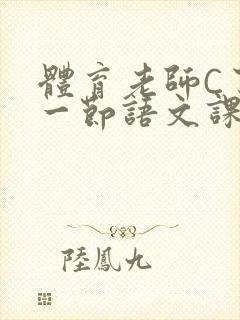 體育老師C
一節語文課
陸鳳九